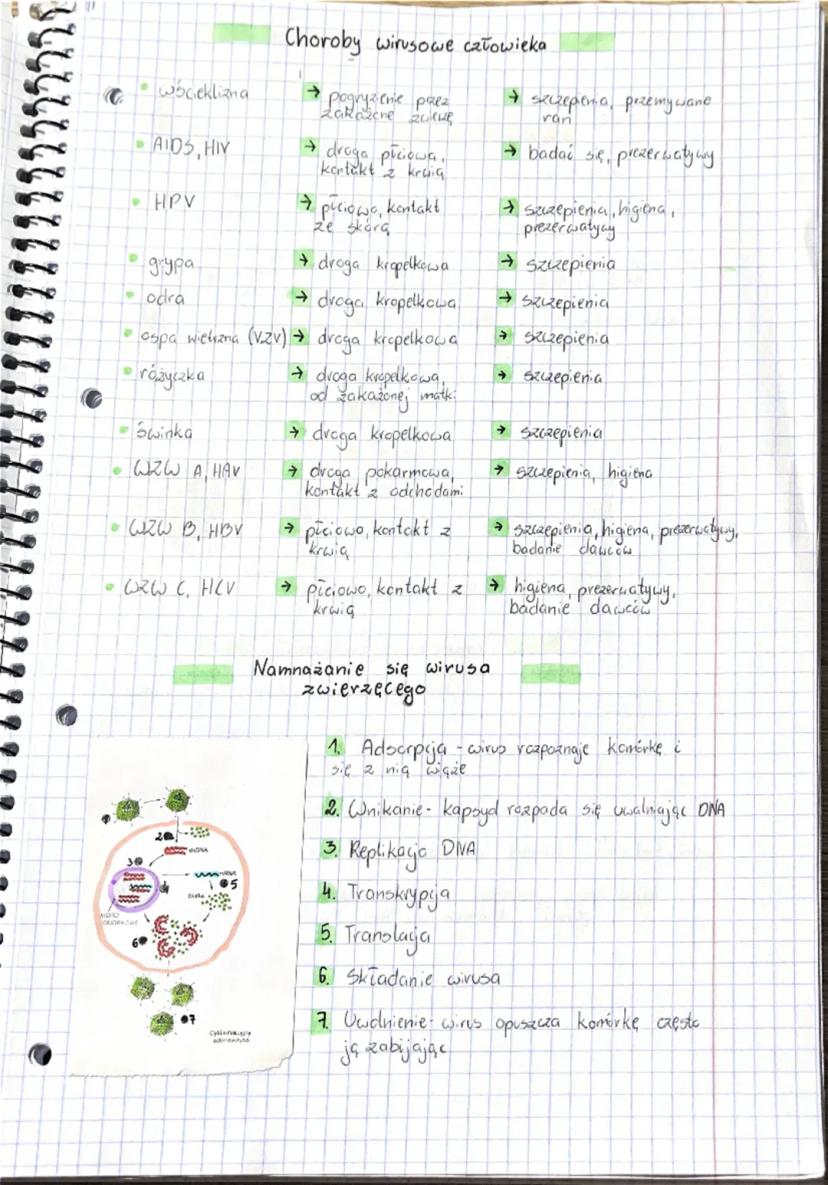 Choroby wirusowe człowieka
• wścieklizna → pogryzienie przez → szczepienia, przemywanie
zakażone zwierzę ran
• AIDS, HIV → droga płciowa, → badać się, prezerwatywy
kontakt z krwią
• HPV → płciowo, kontakt → szczepienia, higiena,
ze skórą prezerwatywy
• grypa → droga kropelkowa → szczepienia
• odra → droga kropelkowa → szczepienia
• ospa wietrzna (VZV) → droga kropelkowa → szczepienia
• różyczka → droga kropelkowa, → szczepienia
od zakażonej matki
• świnka → droga kropelkowa → szczepienia
• WZW A, HAV → droga pokarmowa, → szczepienia, higiena
kontakt z odchodami
• WZW B, HBV → płciowo, kontakt z → szczepienia, higiena, prezerwatywy,
krwią badanie dawców
• WZW C, HCV → płciowo, kontakt z → higiena, prezerwatywy,
krwią badanie dawców
Namnażanie się wirusa
zwierzęcego
1. Adsorpcja - wirus rozpoznaje komórkę i
się z nią wiąże
2. Wnikanie - kapsyd rozpada się uwalniając DNA
3. Replikacja DNA
4. Transkrypcja
5. Translacja
6. Składanie wirusa
7. Uwolnienie - wirus opuszcza komórkę często
ją zabijając
1
2
3
4
5
6
7